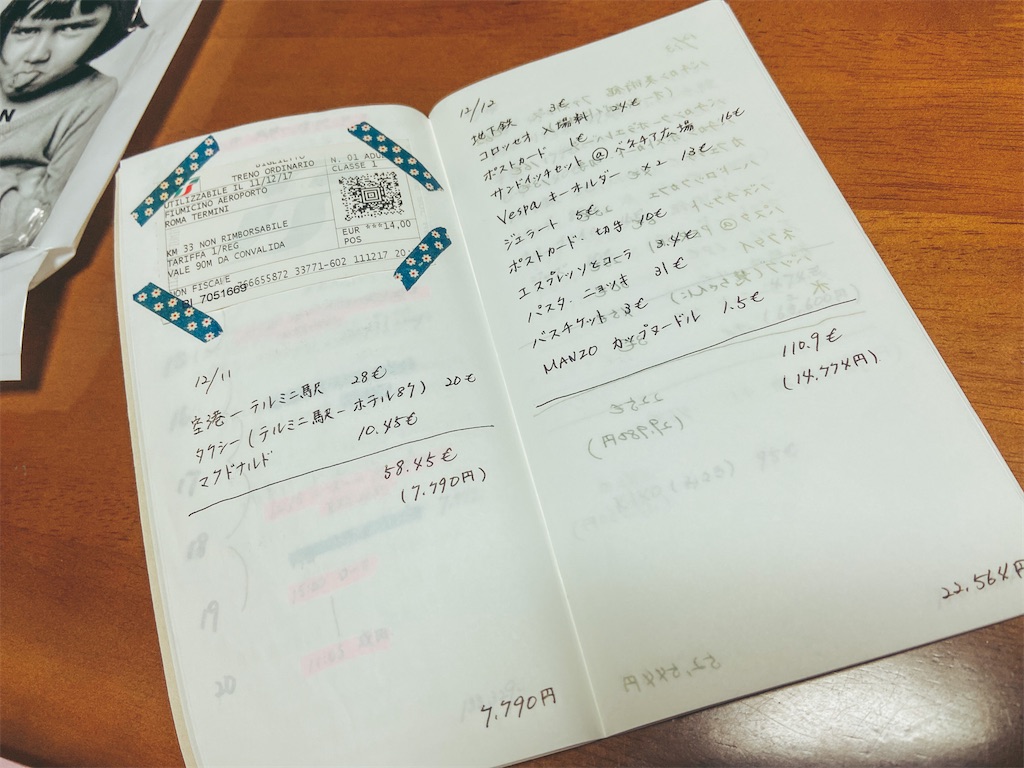 N
BIGLIETTO
TRENO ORDINARIO
N. 01 ADU
CLASSE 1
UTILIZZABILE IL 11/12/17
FIUMICINO AEROPORTO
ROMA TERMINI
KM 33 NON RIMBORSABILE
TARIFFA 1/REG
VALE 90M DA CONVALIDA
EUR ***14,00
POS
NON FISCALE 56655872 33771-602 111217 20
7051669
12/11
空港ーテルミニ駅 28€
タクシー(テルミニ駅ーホテル87) 20€
マクドナルド 10.45€
58.45€
(7.790円)
7.790円
12/12
地下鉄 3€
コロッセオ 入場料 24€
ポストカード 1€
サンドイッチセット @ベネチア広場 16€
Vespa キーホルダー ×2 13€
ジェラート 5€
ポストカード・切手 10€
エスプレッソとコーラ 13.4€
パスタ・ニョッキ 31€
バスチケット 3€
MANZO カップヌードル 1.5€
110.9€
(14.774円)
22.564円